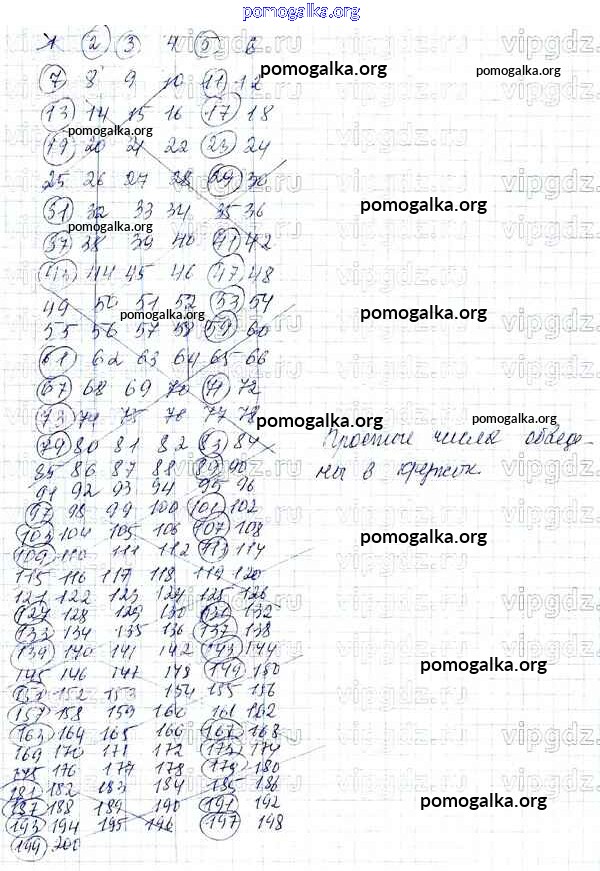 pomogalka.org
1 2 3 4 5 6
7 8 9 10 11 12
13 14 15 16 17 18
19 20 21 22 23 24
25 26 27 28 29 30
31 32 33 34 35 36
37 38 39 40 41 42
43 44 45 46 47 48
49 50 51 52 53 54
55 56 57 58 59 60
61 62 63 64 65 66
67 68 69 70 71 72
73 74 75 76 77 78
79 80 81 82 83 84
85 86 87 88 89 90
91 92 93 94 95 96
97 98 99 100 101 102
103 104 105 106 107 108
109 110 111 112 113 114
115 116 117 118 119 120
121 122 123 124 125 126
127 128 129 130 131 132
133 134 135 136 137 138
139 140 141 142 143 144
145 146 147 148 149 150
151 152 153 154 155 156
157 158 159 160 161 162
163 164 165 166 167 168
169 170 171 172 173 174
175 176 177 178 179 180
181 182 183 184 185 186
187 188 189 190 191 192
193 194 195 196 197 198
199 200
Простые числа обведе-
ны в кружок
pomogalka.org
pomogalka.org
pomogalka.org
pomogalka.org
pomogalka.org
pomogalka.org
pomogalka.org
pomogalka.org
pomogalka.org
pomogalka.org
pomogalka.org
pomogalka.org
pomogalka.org
vipgdz.ru